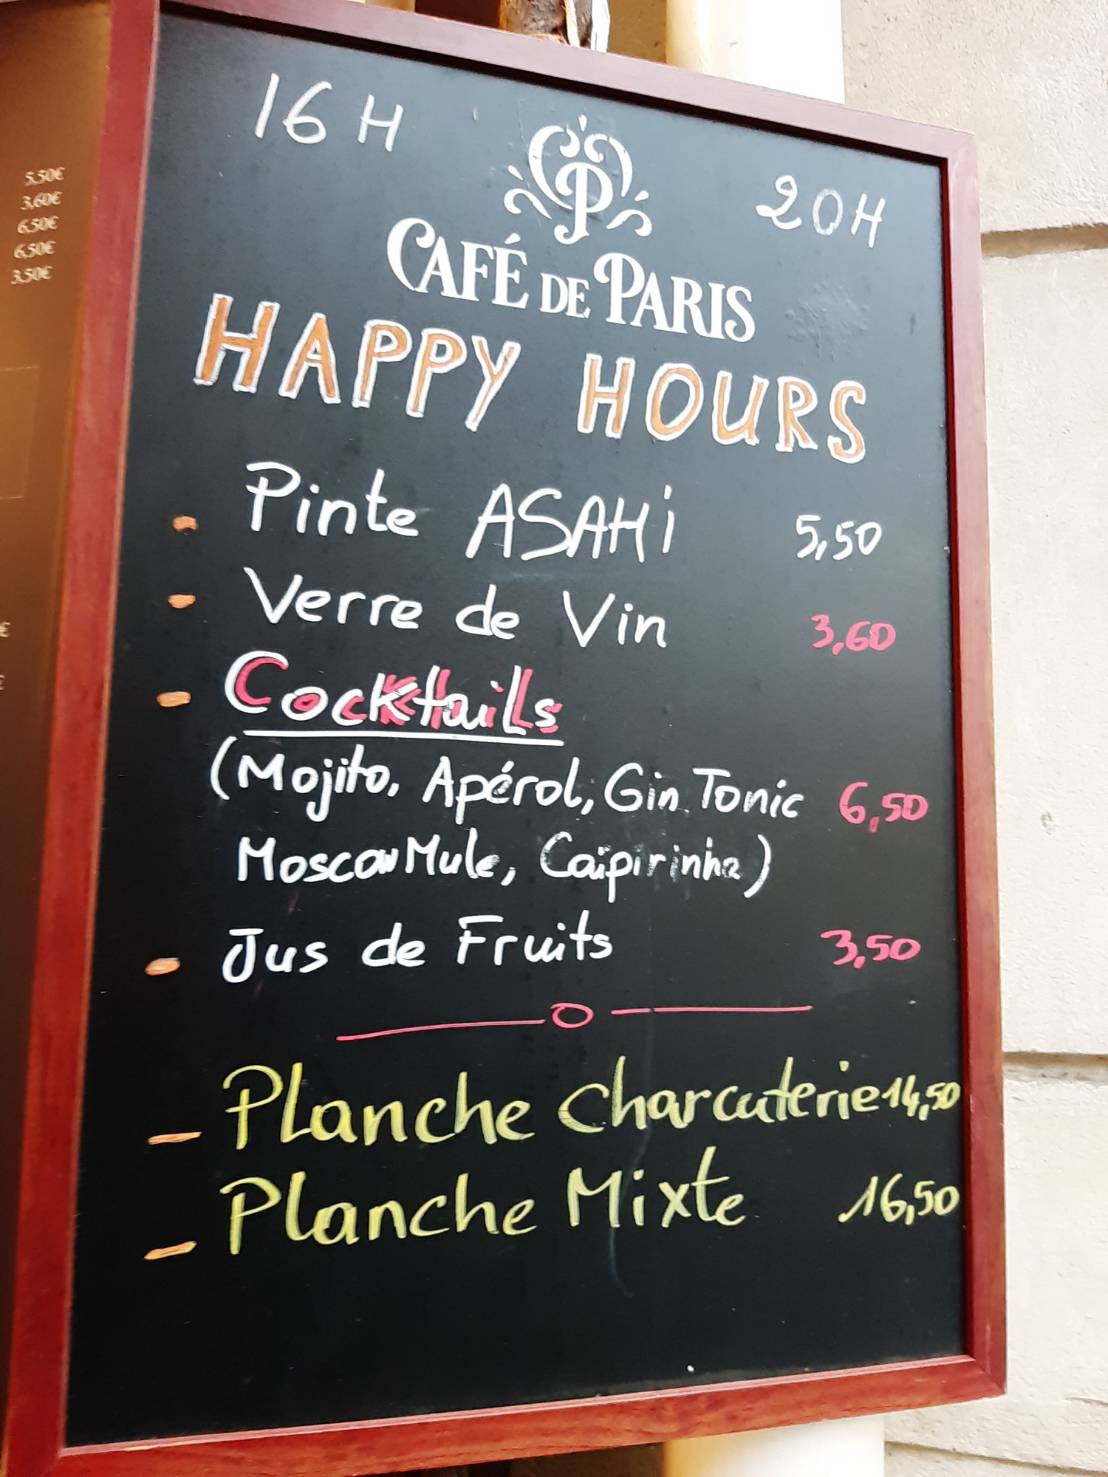 5,50€
3,60€
6,50€
6,50€
3,50€
16H
20H
CAFÉ DE PARIS
HAPPY HOURS
- Pinte ASAHi 5,50
- Verre de Vin 3,60
- Cocktails
(Mojito, Apérol, Gin Tonic 6,50
Moscow Mule, Caïpirinha)
- Jus de Fruits 3,50
- Planche Charcuterie 14,50
- Planche Mixte 16,50